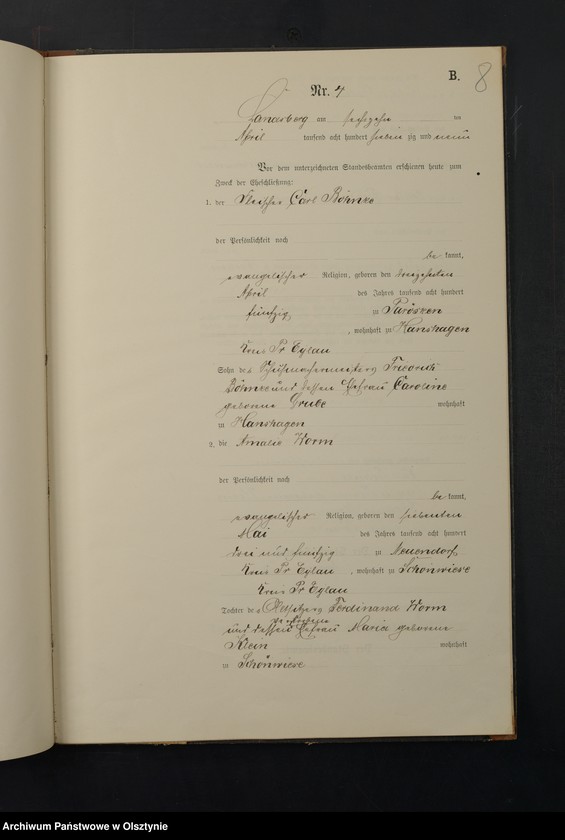 B.
8
Nr. 4
Landsberg am sechszehn ten
April tausend acht hundert sieben zig und neun
Vor dem unterzeichneten Standesbeamten erschienen heute zum
Zweck der Eheschließung:
1. der Fleischer Carl Böhnke
der Persönlichkeit nach
be kannt,
evangelischer Religion, geboren den dreizehnten
April des Jahres tausend acht hundert
fünfzig zu
, wohnhaft zu Hanshagen
Kreis Pr Eylau
Sohn des Schuhmachermeisters Friedrich
Böhnke und dessen Ehefrau Caroline
geborene Grube wohnhaft
zu Hanshagen
2. die Amalie Worm
der Persönlichkeit nach
be kannt,
evangelischer Religion, geboren den siebenten
Mai des Jahres tausend acht hundert
drei und fünfzig zu Neuendorf
Kreis Pr Eylau , wohnhaft zu Schönwiese
Kreis Pr Eylau
Tochter des Altsitzers Ferdinand Worm
verstorbene
und dessen Ehefrau Maria geborene
Klein wohnhaft
zu Schönwiese
Archiwum Państwowe w Olsztynie